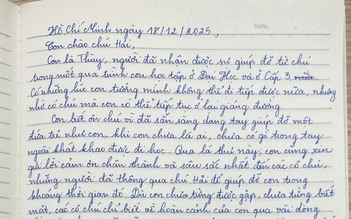 Hồ Chí Minh ngày 18/12/2025,
Date.
Con chào chú Hải,
Con là Thùy, người đã nhận được sự giúp đỡ từ chú
trong suốt quá trình con học tập ở Đại Học và ở Cấp 3,
Có những lúc con tưởng mình không thể đi tiếp được nữa, nhưng
nhờ có chú mà con có thể tiếp tục ở lại giảng đường.
Con biết ơn chú vì đã sẵn sàng dang tay giúp đỡ một
đứa trẻ như con, khi con chưa là ai, chưa có gì trong tay
ngoài khát khao được đi học. Qua lá thư này, con cũng xin
gửi lời cảm ơn chân thành và sâu sắc nhất đến các cô chú,
những người đã thông qua chú Hải để giúp đỡ con trong
khoảng thời gian đó. Dù con chưa từng được gặp, chưa từng biết
mặt, các cô chú chỉ biết về hoàn cảnh của con qua vài dòng